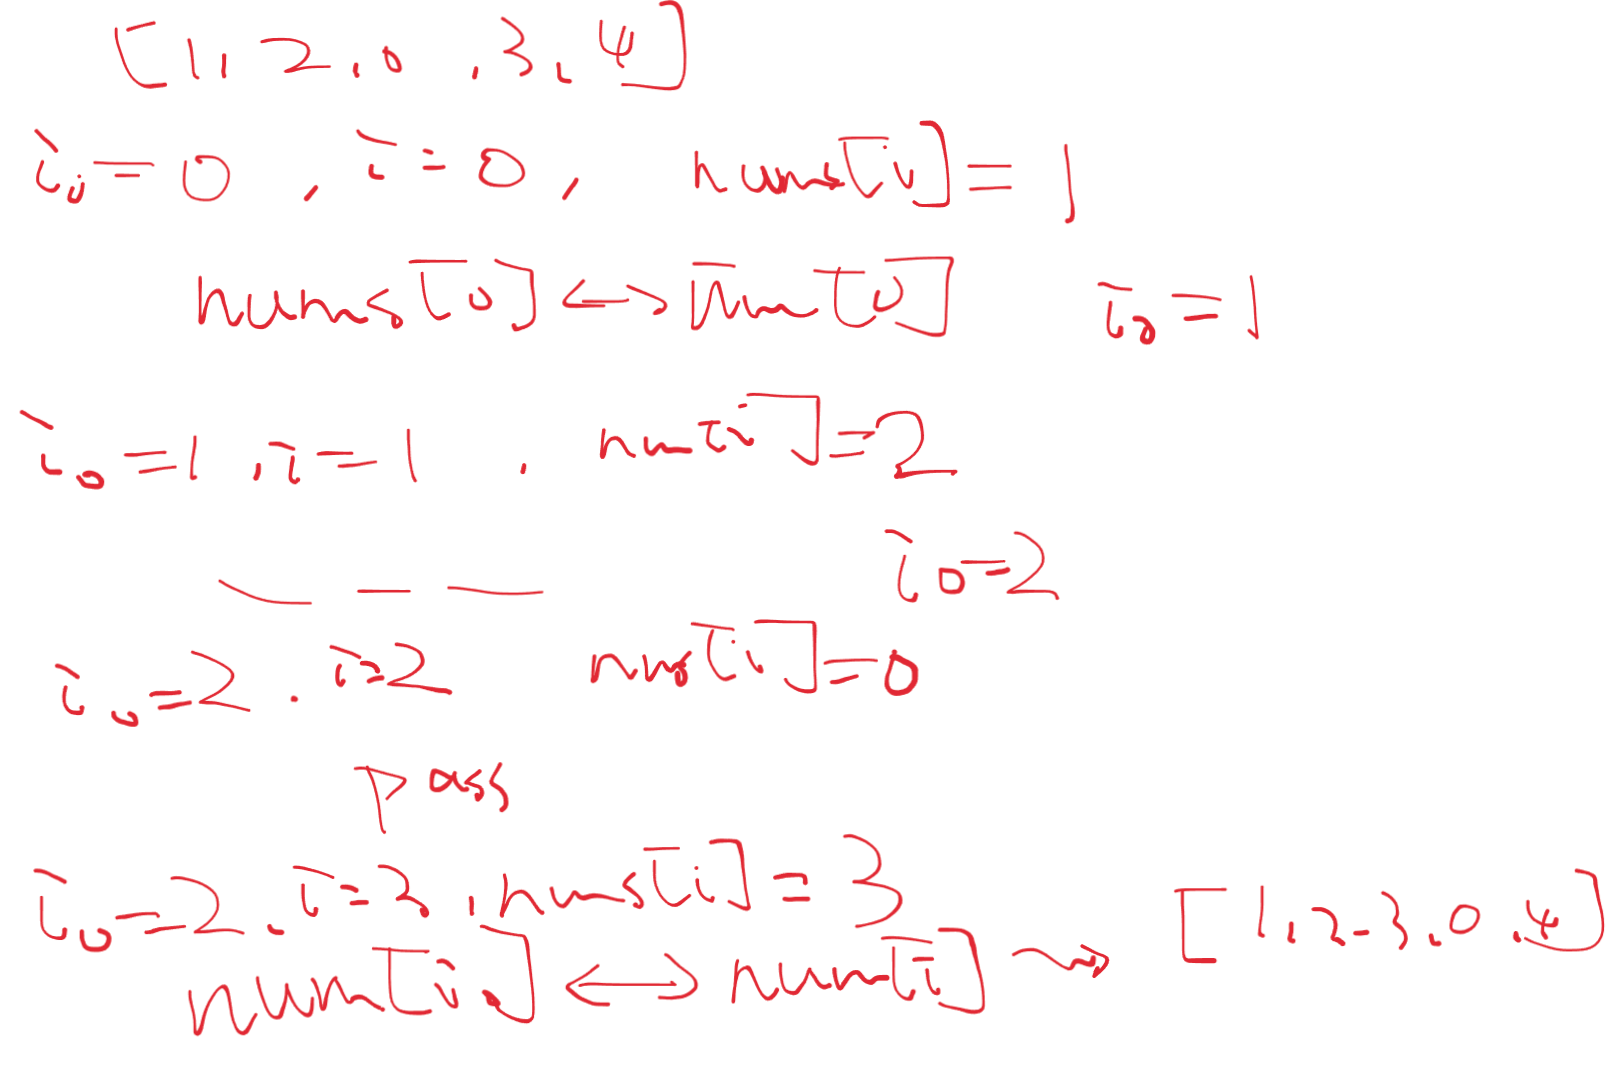 [1, 2, 0, 3, 4]
i₀ = 0, i = 0, nums[i] = 1
nums[0] ↔ num[0] i₀ = 1
i₀ = 1, i = 1, num[i] = 2
— — — i₀ = 2
i₀ = 2. i = 2 nums[i] = 0
pass
i₀ = 2, i = 3, nums[i] = 3
num[i₀] ↔ num[i] ⇝ [1, 2, 3, 0, 4]